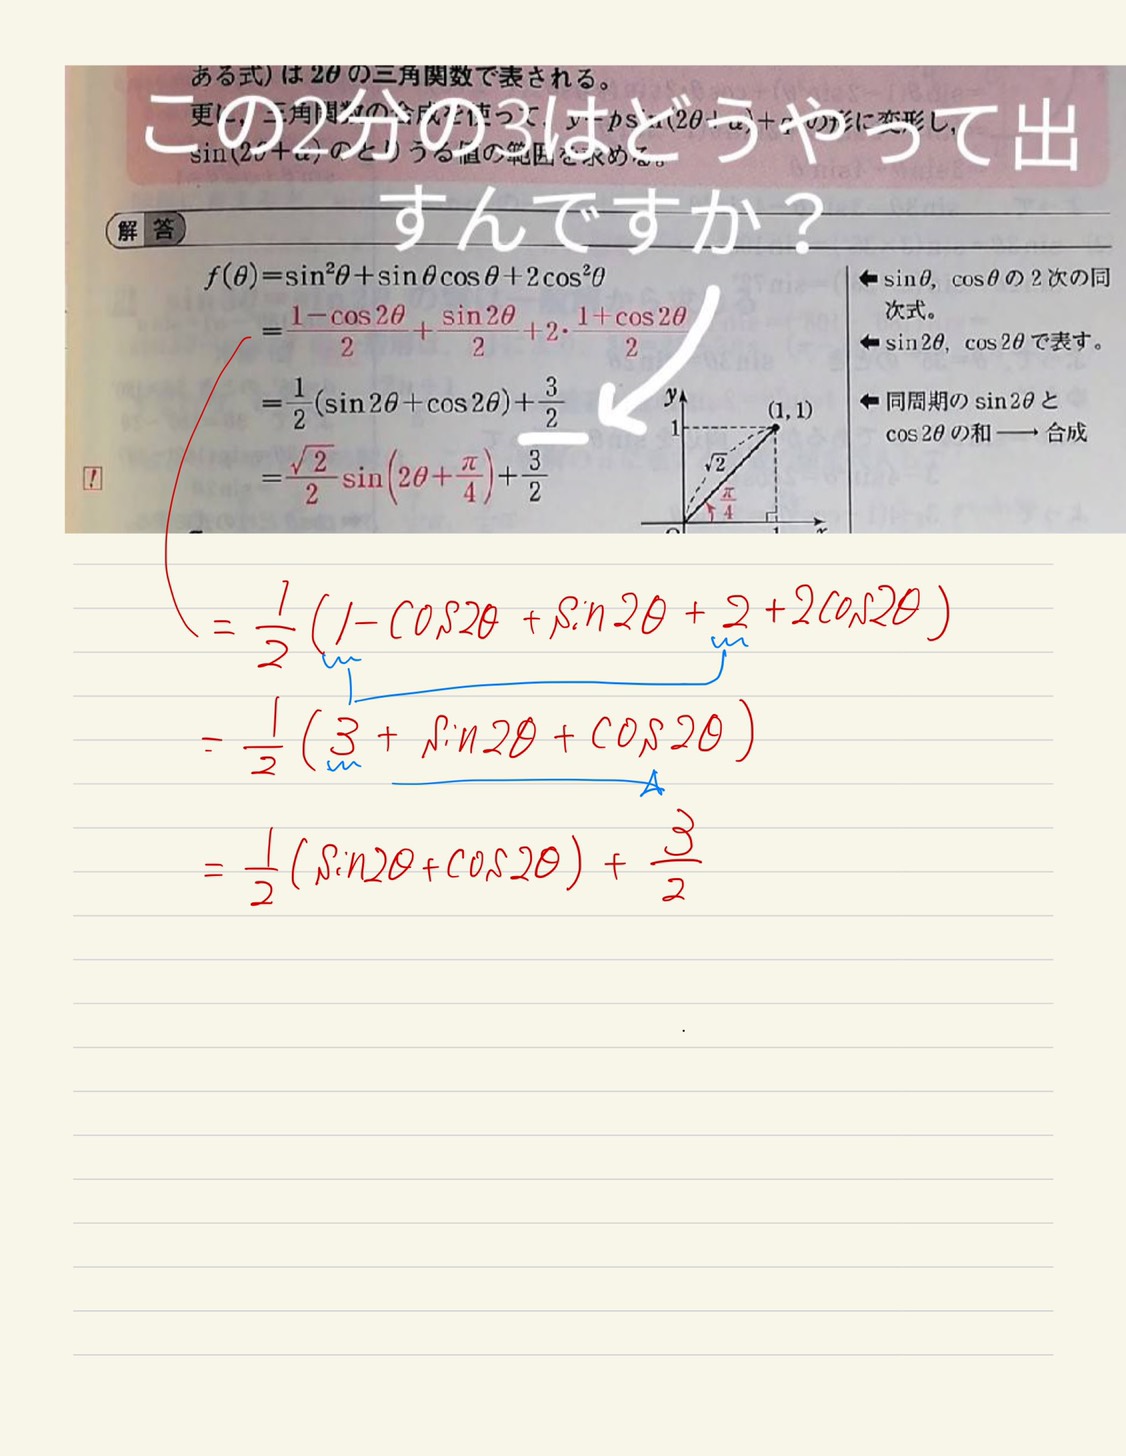 ある式)は2θの三角関数で表される。
更に,三角関数の合成を使って, y=psin(2θ+α)+qの形に変形し,
sin(2θ+α)のとりうる値の範囲を求める。
この2分の3はどうやって出
すんですか?
解答
f(θ)=sin²θ+sinθcosθ+2cos²θ
=\frac{1-cos2θ}{2}+\frac{sin2θ}{2}+2・\frac{1+cos2θ}{2}
=\frac{1}{2}(sin2θ+cos2θ)+\frac{3}{2}
! =\frac{√2}{2}sin(2θ+\frac{π}{4})+\frac{3}{2}
y
(1, 1)
1
√2
\frac{π}{4}
1
x
← sinθ, cosθの2次の同
次式。
← sin2θ, cos2θで表す。
← 同周期のsin2θと
cos2θの和 → 合成
=\frac{1}{2}(1-cos2θ+sin2θ+2+2cos2θ)
=\frac{1}{2}(3+sin2θ+cos2θ)
=\frac{1}{2}(sin2θ+cos2θ)+\frac{3}{2}